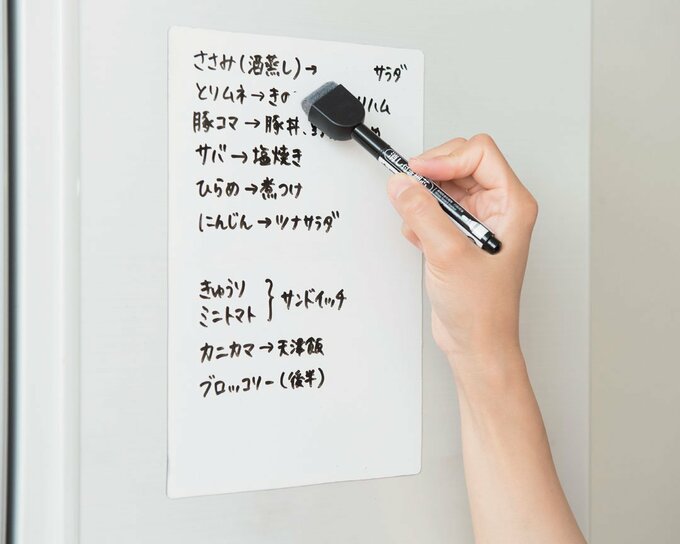 ささみ(酒蒸し)→ サラダ
とリムネ→きの リハム
豚コマ→豚丼、
サバ→塩焼き
ひらめ→煮つけ
にんじん→ツナサラダ
きゅうり
ミニトマト } サンドイッチ
カニカマ→天津飯
ブロッコリー(後半)